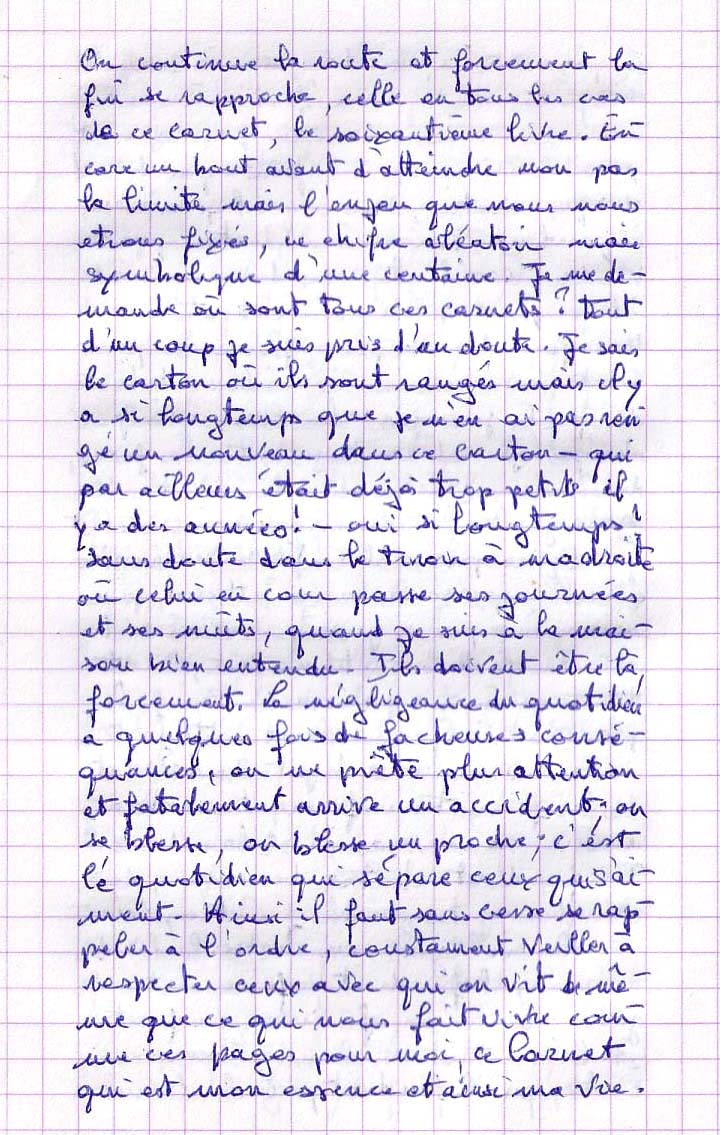 On continue la route et forcement la
fin se rapproche, celle en tous les cas
de ce carnet, le soixantième livre. En
core un bout avant d'atteindre non pas
la limite mais l'enjeu que nous nous
etions fixés, ce chifre aléatoir mais
symbolique d'une centaine. Je me de-
mande où sont tous ces carnets ? Tout
d'un coup je suis pris d'un doute. Je sais
le carton où ils sont rangés mais il y
a si longtemps que je n'en ai pas ran
gé un nouveau dans ce carton – qui
par ailleurs était déjà trop petit il
y a des années ! – oui si longtemps !
Sans doute dans le tiroir à ma droite
où celui en cour passe ses journées
et ses nuits, quand je suis à la mai-
son bien entendu. Ils doivent être là,
forcement. La négligeance du quotidien
a quelques fois de facheuses consé-
quances, on ne prête plus attention
et fatalement arrive un accident, on
se blesse, on blesse un proche, c'est
le quotidien qui sépare ceux qui s'ai-
ment. Ainsi il faut sans cesse se rap-
peler à l'ordre, constament veiller à
respecter ceux avec qui on vit de mê-
me que ce qui nous fait vivre com
me ces pages pour moi, ce carnet
qui est mon essence et ainsi ma vie.